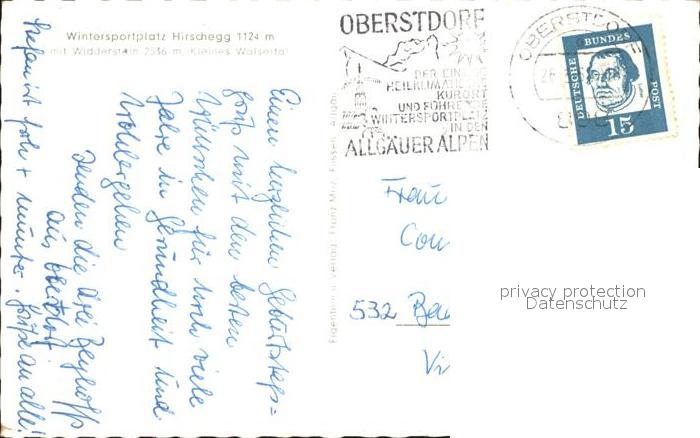 Wintersportplatz Hirschegg 1124 m
mit Widderstein 2536 m, Kleines Walsertal
Einen herzlichen Geburtstags=
gruß mit den besten
Wünschen für noch viele
Jahre in Gesundheit und
Wohlergehen
senden die drei
aus Oberstdorf
Stefan ist froh + munter. Grüße an alle!
Eigentum u. Verlag Franz Milz, Füssen, Allgäu
OBERSTDORF
DER EINZIGE
HEILKLIMATISCHE
KURORT
UND FÜHRENDE
WINTERSPORTPLATZ
IN DEN
ALLGÄUER ALPEN
OBERSTDORF
26
DEUTSCHE BUNDES POST
15
Frau
532
privacy protection
Datenschutz